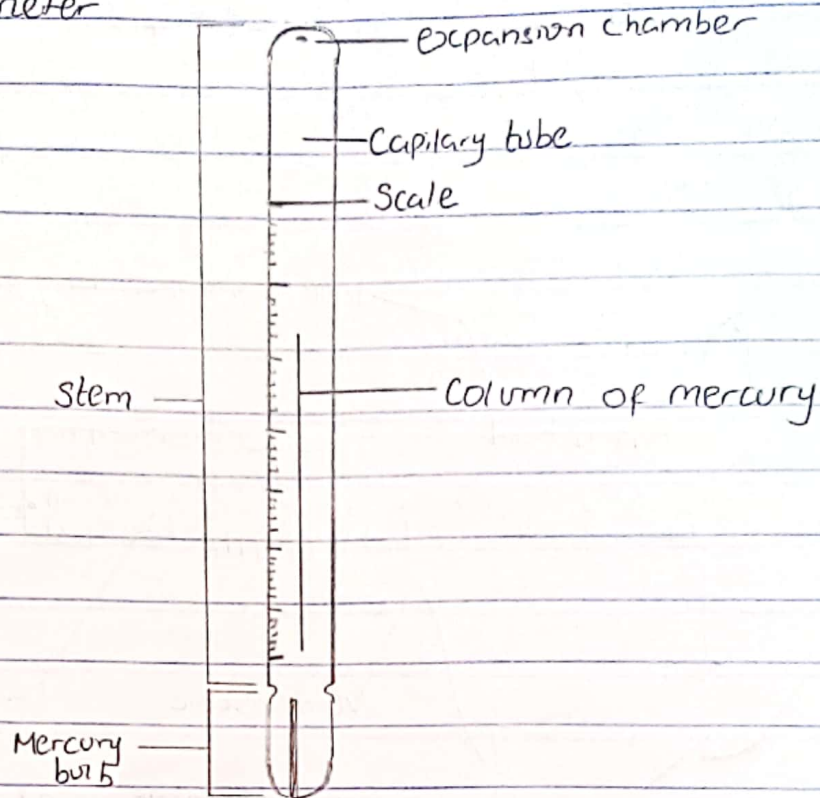 expansion chamber
Capilary tube
Scale
Stem
Column of mercury
Mercury